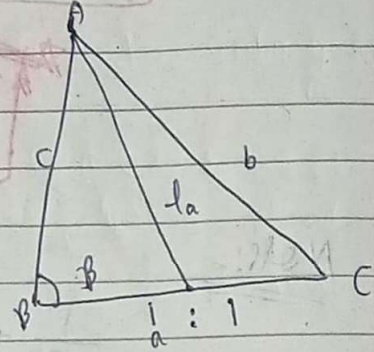 A
c
b
la
B
β
C
1 : 1
a